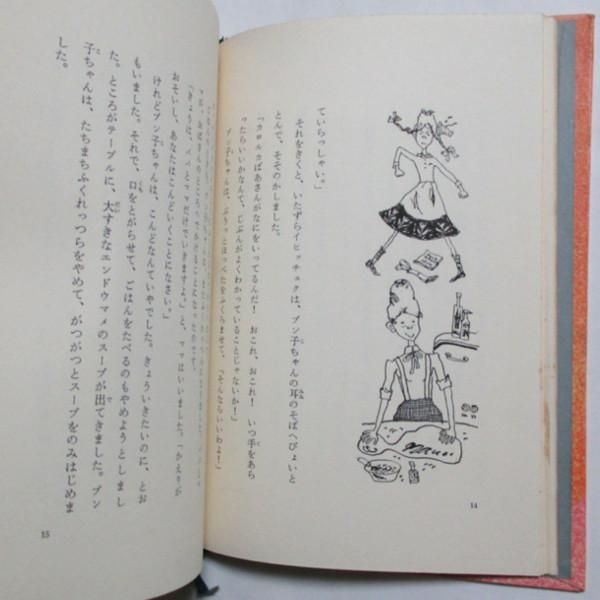 ていらっしゃい。」
それをきくと、いたずらイヒッチュクは、プン子ちゃんの耳のそばへぴょいと
とんで、そそのかしました。
「カロルカばあさんがなにをいってるんだ! おこれ、おこれ! いつ手をあら
ったらいいかなんて、じぶんがよくわかっていることじゃないか!」
プン子ちゃんは、ぷうっとほっぺたをふくらませて、「そんならいいわよ!」
14
「きょうは、パパとママだけでいきますよ。」と、ママはいいました。「かえりが
おそいし、あなたはこんどいくことになさい。」
けれどプン子ちゃんは、こんどなんていやでした。きょういきたいのに、とお
もいました。それで、口をとがらせて、ごはんをたべるのもやめようとしまし
た。ところがテーブルに、大すきなエンドウマメのスープが出てきました。プン
子ちゃんは、たちまちふくれっつらをやめて、がつがつとスープをのみはじめま
した。
15